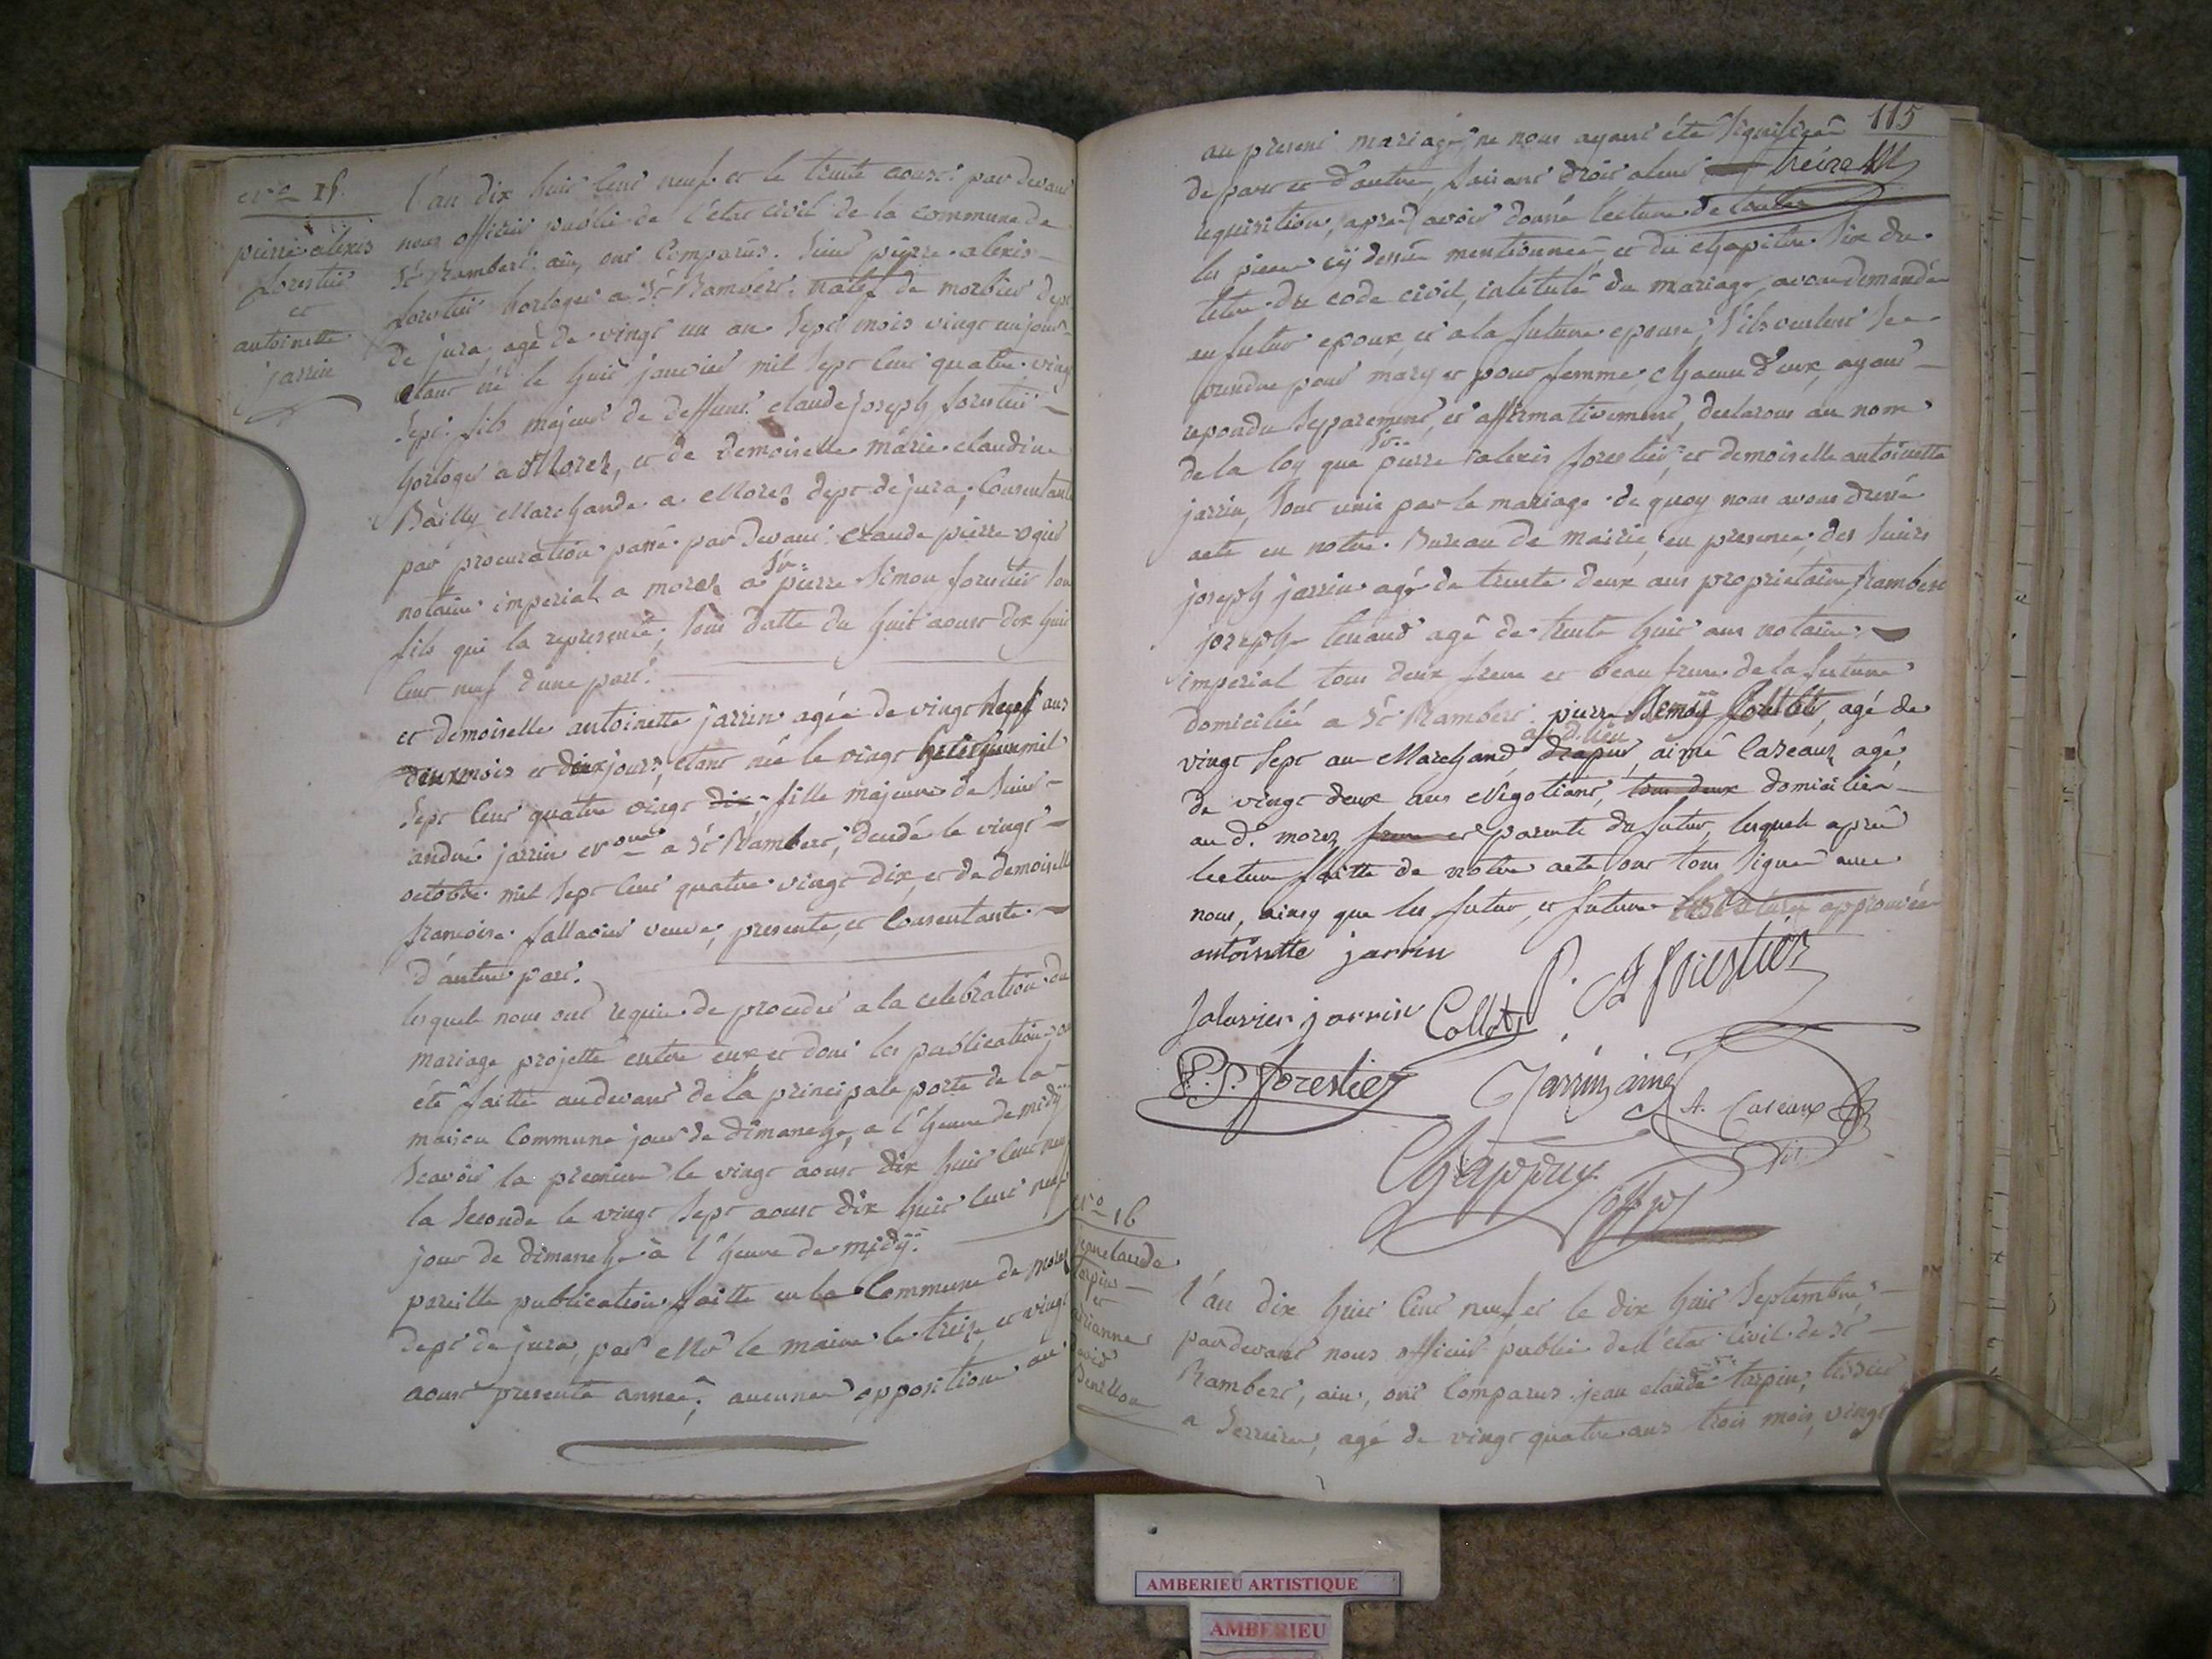 Nro 15.
pierre alexis
forestier
et
antoinette
jarrin
L'an dix huit cent neuf et le trente aoust par devant
nous officier public de l'état civil de la commune de
St Rambert, ain, ont comparus. Sieur pierre alexis
forestier horloger a St Rambert. natif de morbier dept
de jura, agé de vingt un an sept mois vingt un jours
etant né le huit janvier mil sept cent quatre vingt
sept. fils majeur de deffunt claude joseph forestier
horloger a Morez, et de demoiselle marie claudine
Bailly Marchande a Morez dept de jura, Consentante
par procuration passé par devant claude pierre
notaire imperial a morez a Sr. pierre Simon forestier son
fils qui la represente, sous datte du huit aoust dix huit
cent neuf d'une part.
et demoiselle antoinette jarrin agée de vingt neuf ans
deux mois et dix jours, etant née le vingt mil
sept cent quatre vingt fille majeure de Sieur
andré jarrin a St Rambert, décédé le vingt
octobre mil sept cent quatre vingt dix, et de demoiselle
francoise fallavier veuve, presente, et Consentante
d'autre part.
lesquels nous ont requis de proceder a la celebration du
mariage projetté entre eux et dont les publications ont
été faitte audevant de la principale porte de la
maison Commune jour de dimanche, a l'heure de midÿ
Scavoir la premiere le vingt aoust dix huit cent neuf
la Seconde le vingt sept aoust dix huit cent neuf
jour de dimanche à l'heure de midÿ.
pareille publication faitte en la Commune de morez
dept de jura, par Mr le maire le treize et vingt
aoust presente année, aucunes opposition au
115
au present mariage, ne nous ayant été Signifiées
de part et d'autre, faisant droit a leur
requisition, apres avoir donné lecture de toutes
les pieces cÿ dessus mentionnées, et du chapitre Six du
titre du code civil, intitulé du mariage, avons demandé
au futur epoux, et a la future epouse, s'ils veulent se
prendre pour mary et pour femme, chacun d'eux, ayant
repondu separement, et affirmativement, declarons au nom
de la loy que Sr. pierre alexis forestier, et demoiselle antoinette
jarrin, sont unis par le mariage. de quoy nous avons dressé
acte en notre Bureau de mairie, en presence, des Sieurs
joseph jarrin agé de trente deux ans proprietaire Rambert
joseph agé de trente huit ans notaire
imperial tous deux frere et beau frere de la future
domicilié a St Rambert. pierre agé de
vingt sept an Marchand drapier, aimé Cazeaux agé,
de vingt deux ans Négotiant, tous deux domiciliés
au d. morez frere et parents du futur, lesquels apres
lecture faitte de notre acte, ont tous Signé avec
nous, ainsy que les futur, et future approuvée
antoinette jarrin
P. A forestier
falavier jarrin Collet
P. S. forestier
Jarrin ainé
A. Cazeaux
Chappuy.
Nro 16
jean claude
tarpin
et
L'an dix huit cent neuf et le dix huit Septembre,
par devant nous officier public de l'etat civil de St
Rambert, ain, ont Comparus jean claude tarpin, tissier
a Serriere, agé de vingt quatre ans trois mois, vingt
AMBERIEU ARTISTIQUE
AMBERIEU